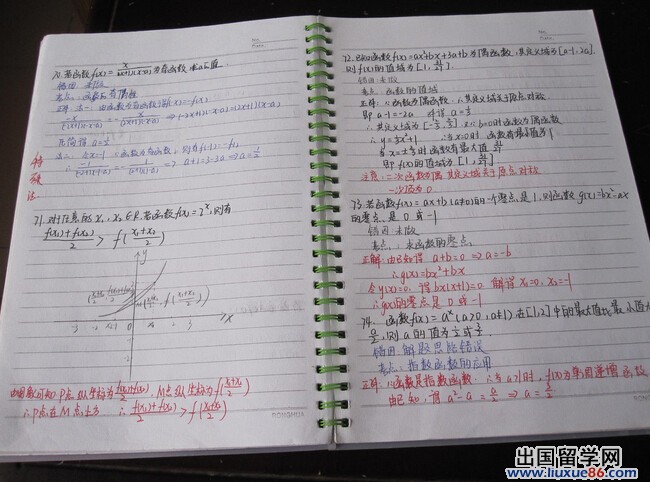 70. 若函数f(x)=x/(2x+1)(x-a)为奇函数,求a的值.
错因:未做
考点:函数的奇偶性
正解:法一:由函数为奇函数得f(-x)=-f(x)
化简得 a=1/2
法二
特殊法
71. 对于任意的x₁,x₂∈R,若函数f(x)=2ˣ,则有
f(x₁)+f(x₂)/2 > f(x₁+x₂/2)
y
x
由图象可知P点纵坐标为f(x₁)+f(x₂)/2,M点纵坐标为f(x₁+x₂/2)
∴P点在M点上方 ∴f(x₁)+f(x₂)/2>f(x₁+x₂/2)
72. 已知函数f(x)=ax²+bx+3a+b为偶函数,其定义域为[a-1,2a],
则f(x)的值域为[1,31/27].
错因:未做
考点:函数的值域
正解:∵函数为偶函数,∴其定义域关于原点对称
即a-1=-2a 计得a=1/3
∴其定义域为[-2/3,2/3] ∵b=0时函数为偶函数
当x=±2/3时函数有最大值31/27
即f(x)的值域为[1,31/27]
注意:二次函数为偶,其定义域关于原点对称
一次项为0
73. 若函数f(x)=ax+b(a≠0)的一个零点是1,则函数g(x)=bx²-ax
的零点是0或-1
错因:未做
考点:求函数的零点
正解:由已知得 a+b=0 ⇒a=-b
∴g(x)=bx²+bx
令g(x)=0,得bx(x+1)=0 解得x₁=0,x₂=-1
∴g(x)的零点是0或-1
74. 函数f(x)=aˣ(a>0,a≠1)在[1,2]中的最大值比最小值大
a/2,则a的值为1/2或3/2.
错因:解题思路错误
考点:指数函数的运用
正解:∵函数是指数函数 ∴当a>1时,f(x)为单调递增函数
由已知,得a²-a=a/2 ⇒a=3/2
RONGHUA
出国留学网
www.liuxue86.com